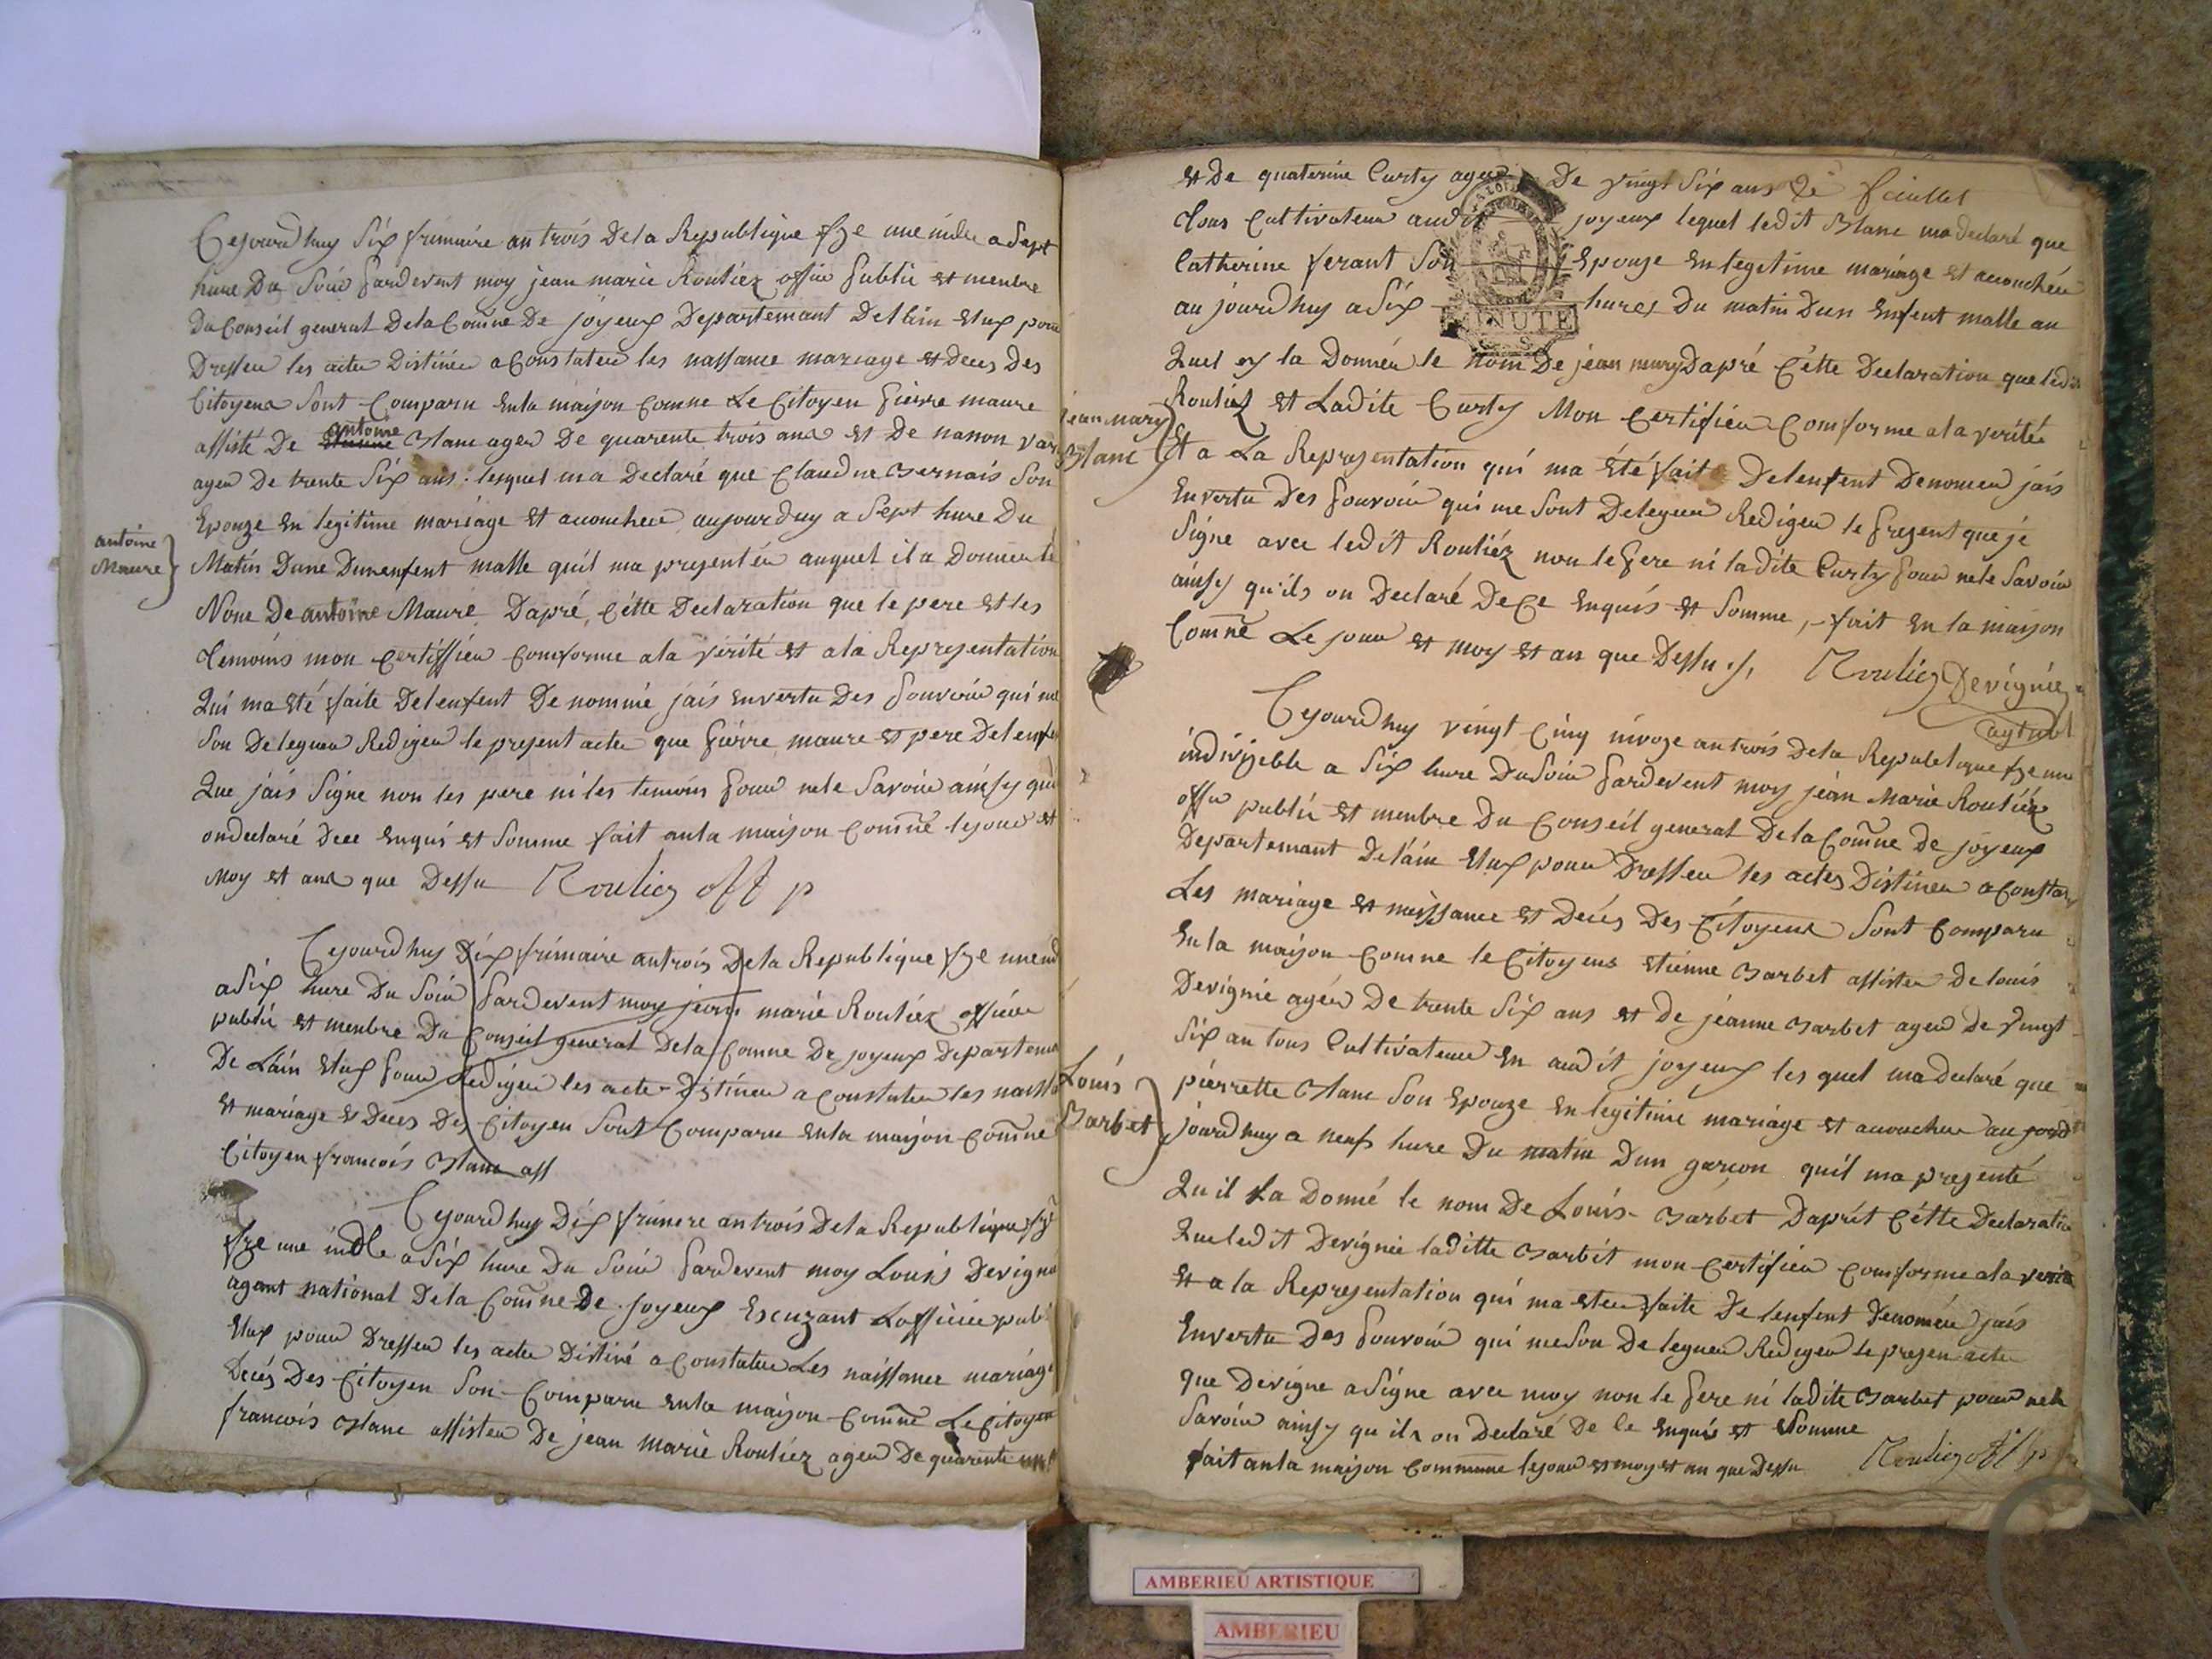 Cejourdhuy Six frimaire an trois De la Republique fze une indle a Sept
hure Du Soir pardevent moy jean marie Rouliez offier publit et menbre
Du Conseil general De la Comne De joyeux Departemant Del'ain Elux pour
Dresser les actes Distinéz a Constater les naissance mariage et Deces Des
Citoyens Sont Comparu En la maison Comne Le Citoyen pierre maure
assisté De antoine Blanc agez De quarente trois ans et De nanon
agez De trente Six ans. lesquel ma Declaré que Claudine Bernais Son
Epouze En legitime mariage Et acouchez aujourduy a Sept hure Du
antoine
Maure
Matin Dune Dunenfent malle quil ma presentéz auquel il a Donnez le
Nom De antoine Maure Dapré Cétte Declaration que le pere Et les
temoins mon Certiffiéz Comforme a la vérité et a la Representation
Qui ma Eté faite Delenfent De nommé jais En vertu Des pouvoir qui me
Son Deleguéz Rediger le present acte que pierre maure Et pere Del enfe
Que jais Signe non les pere ni les temoin pour nele Savoir ainsy qu
on declaré De ce Enquis et Somme fait an la maison Comne le jour et
Moy et ans que Dessu Rouliez off p
Cejourdhuy Dix frimaire an trois De la Republique fze une ind
a Six hure Du Soir pardevent moy jean marie Rouliéz offiéer
publit et menbre Du Conseil general De la Comne De joyeux Departema
De Lain Elux pour Rediger les acte Distinez a Constater les naissa
Et mariage Et Deces Des Citoyen Sont Comparu En la maison Comne
Citoyen francois Blanc ass
Cejourdhuy Dix frimere an trois De la Republique
fze une indle a Six hure Du Soir pardevent moy Louis Devigne
agant national De la Comne De joyeux Escuzant Lofficiee publ
Elux pour Dresser les acte Distiné a Constater Les naissance mariage
Decés Des Citoyen Son Comparu En la maison Comne Le Citoyen
francois Blanc assistez De jean Marie Rouliez agez De quarente
et De quaterine Curty agez De vingt Six ans 2e feuillet
tous Cultivateur audit joyeux lequel ledit Blanc ma declaré que
Catherine ferant Son Epouze En legetime mariage et acouchéz
au jourdhuy a Six hures Du matin Dun Enfent malle au
MINUTE
Quel ez la Donnéz le nom De jean mary Dapré Cétte Declaration que ledit
jean mary
Blanc
Rouliez et Ladite Curty Mon Certifiez Comforme a la verité
Et a La Representation qui ma Eté fait Delenfent Denomez jais
En vertu Des pouvoir qui me Sont Deleguez Rediger le present que je
Signe avec ledit Rouliéz non le pere ni ladite Curty pour nele Savoir
ainsy qu'ils on Declaré De Ce Enquis et Somme, fait En la maison
Comne Le jour et moy et an que Dessu. Rouliez Devignie
agt nat
Cejourdhuy vingt Cinq nivoze an trois De la Republique fze une
indivizeble a Six hure Du Soir pardevent moy jean Marie Rouliéz
offer publit et menbre Du Conseil general De la Comne De joyeux
Departemant De l'ain Elux pour Dresser les actes Distinez a Constater
Les mariage et naissance et Decés Des Citoyens Sont Comparu
En la maison Comne le Citoyens Etienne Barbet assistez De louis
Devignie agéz De trente Six ans et de jeanne Barbet agez de vingt
Six an tous Cultivateur En audit joyeux les quel ma declaré que
Louis
Barbet
pierrette Blanc Son Epouze En legitime mariage et acouchez au jourd
jourdhuy a neuf hure Du matin Dun garcon quil ma presenté
Quil La Donné le nom De Louis Barbet Daprét Cétte Declaratio
Queledit Devignie laditte Barbét mon Certifiez Comforme ala verité
Et a la Representation qui ma Etez faite De lenfent Denoméz jais
En vertu Des pouvoir qui me Son De leguez Rediger le presen acte
que Devigne a Signe avec moy non le pere ni ladite Barbet pour nele
Savoir ainsy qu ils on Declaré De Ce Enquis et Somme
fait an la maison Commune le jour et moy et an que Dessu Rouliez off p
AMBERIEU ARTISTIQUE
AMBERIEU